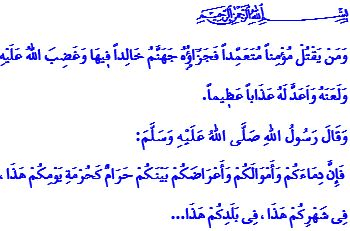 بسم الله الرحمن الرحيم
وَمَنْ يَقْتُلْ مُؤْمِناً مُتَعَمِّداً فَجَزَاؤُهُ جَهَنَّمُ خَالِداً فِيهَا وَغَضِبَ اللهُ عَلَيْهِ
وَلَعَنَهُ وَاَعَدَّ لَهُ عَذَاباً عَظِيماً.
وَقَالَ رَسُولُ اللهِ صَلَّى اللهُ عَلَيْهِ وَسَلَّمَ:
فَاِنَّ دِمَاءَكُمْ وَأَمْوَالَكُمْ وَأَعْرَاضَكُمْ بَيْنَكُمْ حَرَامٌ كَحُرْمَةِ يَوْمِكُمْ هَذَا ،
فِى شَهْرِكُمْ هَذَا ، فِى بَلَدِكُمْ هَذَا...